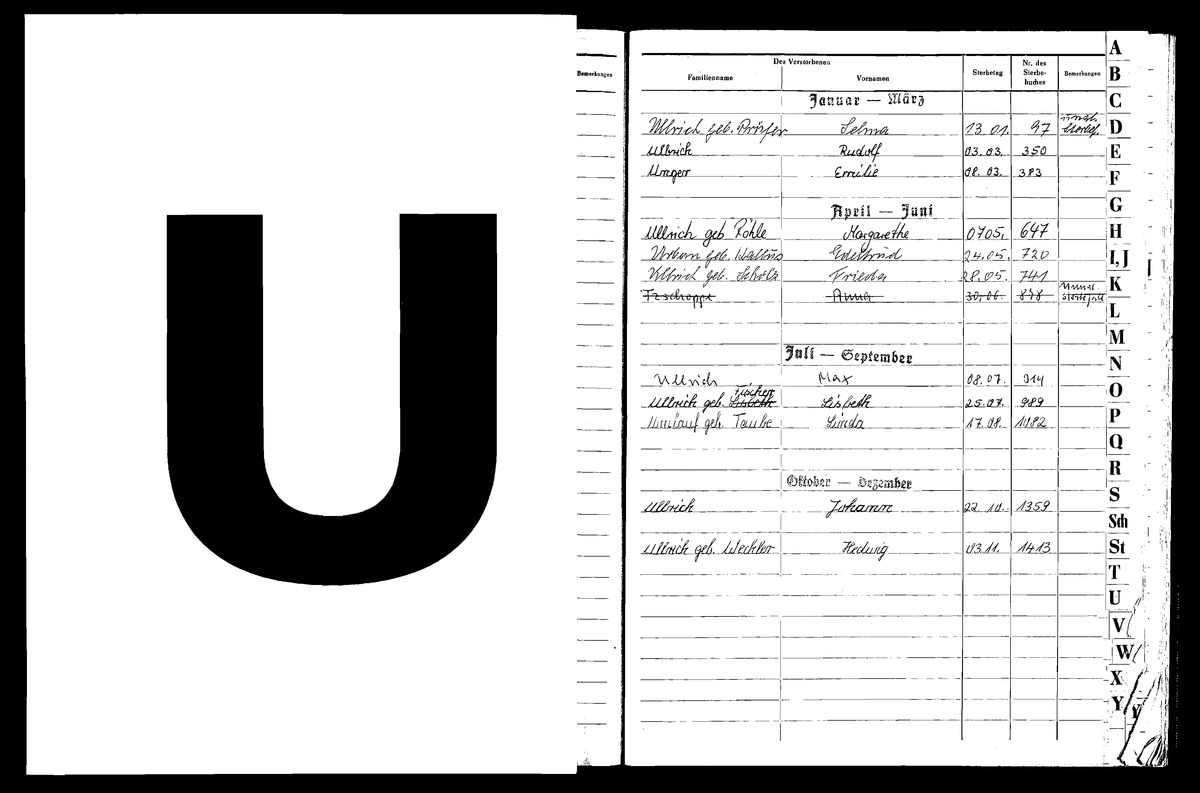 U
Bemerkungen
Des Verstorbenen
Familienname Vornamen Sterbetag Nr. des Sterbebuches Bemerkungen
Januar — März
Ullrich geb. Selma 13.01. 97
Ullrich Rudolf 03.03. 350
Unger Emilie 08.03. 383
April — Juni
Ullrich geb Röhle Margarethe 0705. 647
Urban geb. Edeltrud 24.05. 720
Ullrich geb. Scholz Frieda 28.05. 741
Tzschoppe Anna 30.06. 878
Juli — September
Ullrich Max 08.07. 914
Fischer
Ullrich geb. Lisbeth Lisbeth 25.07. 989
Umlauf geb. Taube Linda 17.08. 1082
Oktober — Dezember
Ullrich Johann 22.10. 1359
Ullrich geb. Hedwig 03.11. 1413
A
B
C
D
E
F
G
H
I, J
K
L
M
N
O
P
Q
R
S
Sch
St
T
U
V
W
X
Y
Y